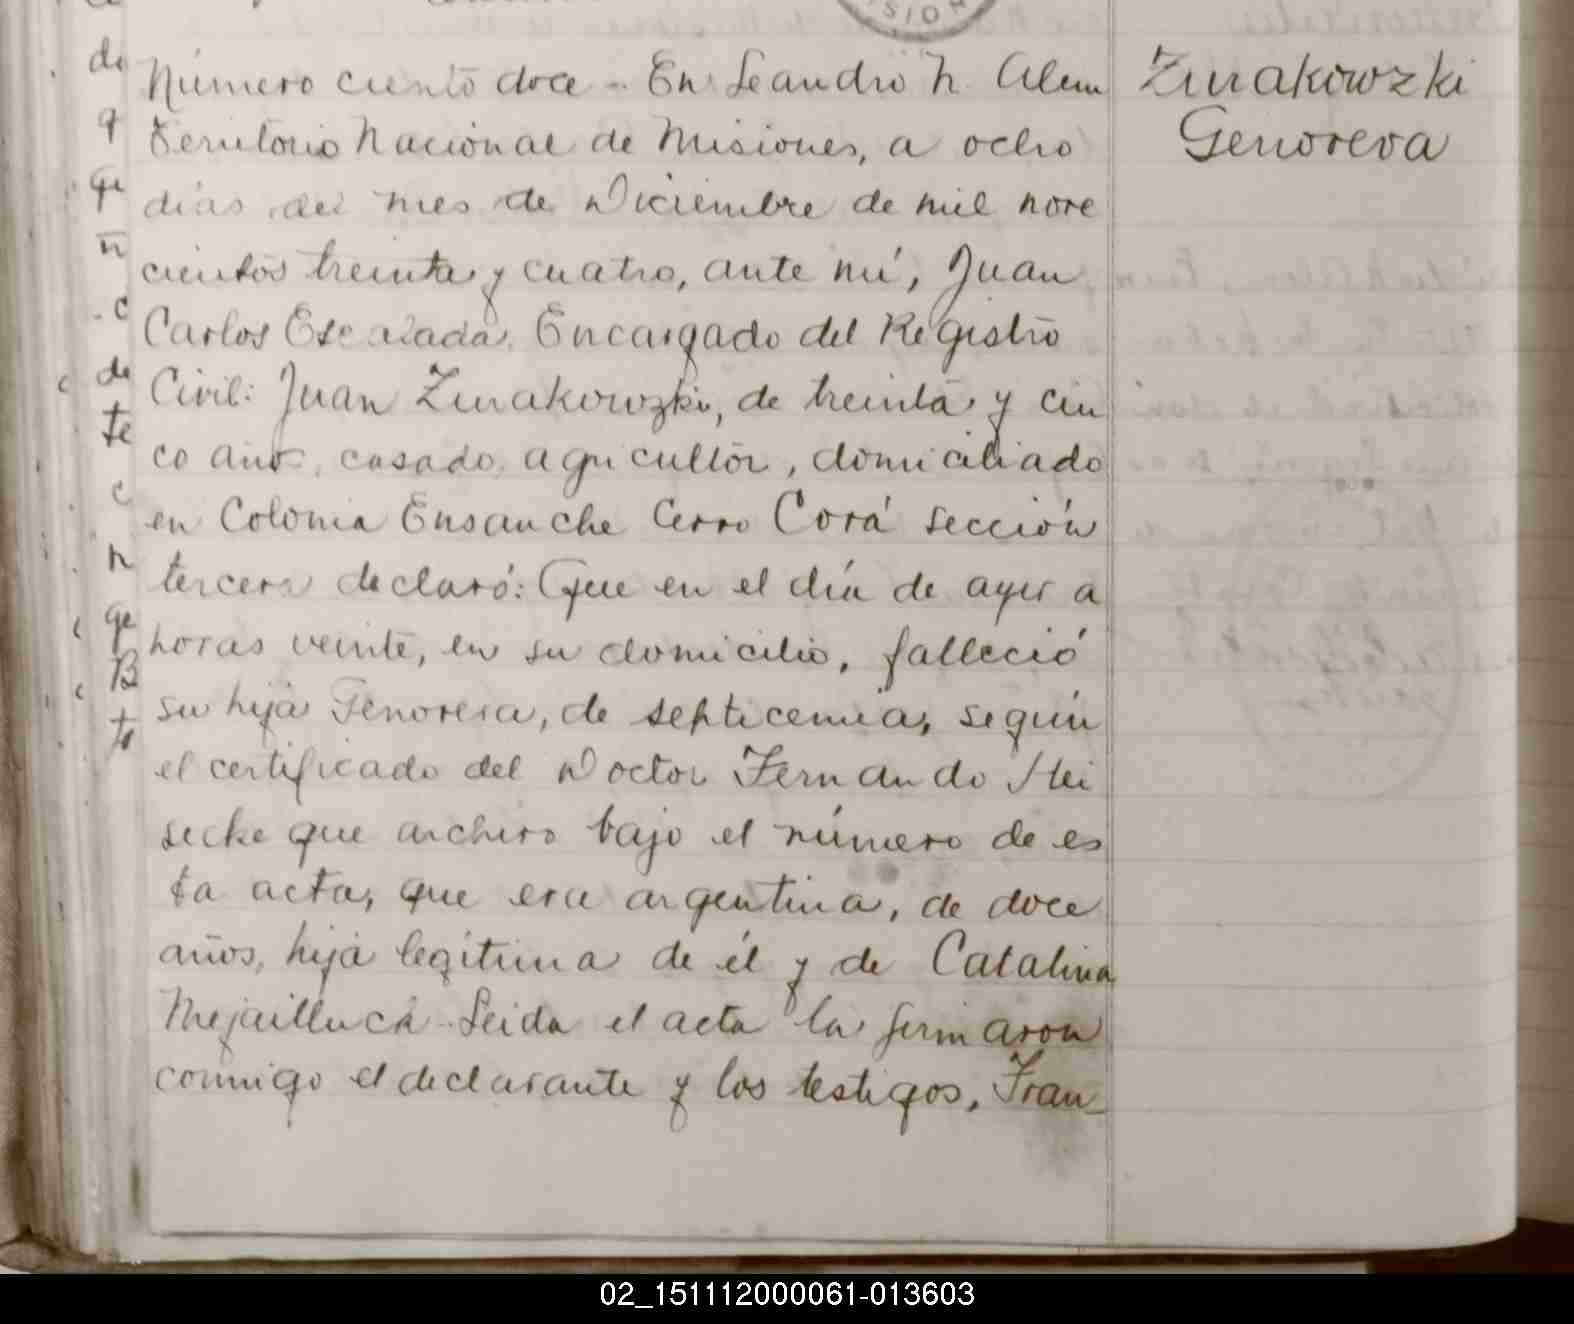 Número ciento doce - En Leandro N. Alem
Territorio Nacional de Misiones, a ocho
días del mes de Diciembre de mil nove
cientos treinta y cuatro, ante mí, Juan
Carlos Escalada, Encargado del Registro
Civil: Juan Zmakowzki, de treinta y cin
co años, casado, agricultor, domiciliado
en Colonia Ensanche Cerro Corá sección
tercera declaró: Que en el día de ayer a
horas veinte, en su domicilio, falleció
su hija Genoveva, de septicemia, según
el certificado del Doctor Fernando Hei
secke que archivo bajo el número de es
ta acta, que era argentina, de doce
años, hija legítima de él y de Catalina
Mejailluca. Leida el acta la firmaron
conmigo el declarante y los testigos, Fran
Zmakowzki
Genoveva
02_151112000061-013603